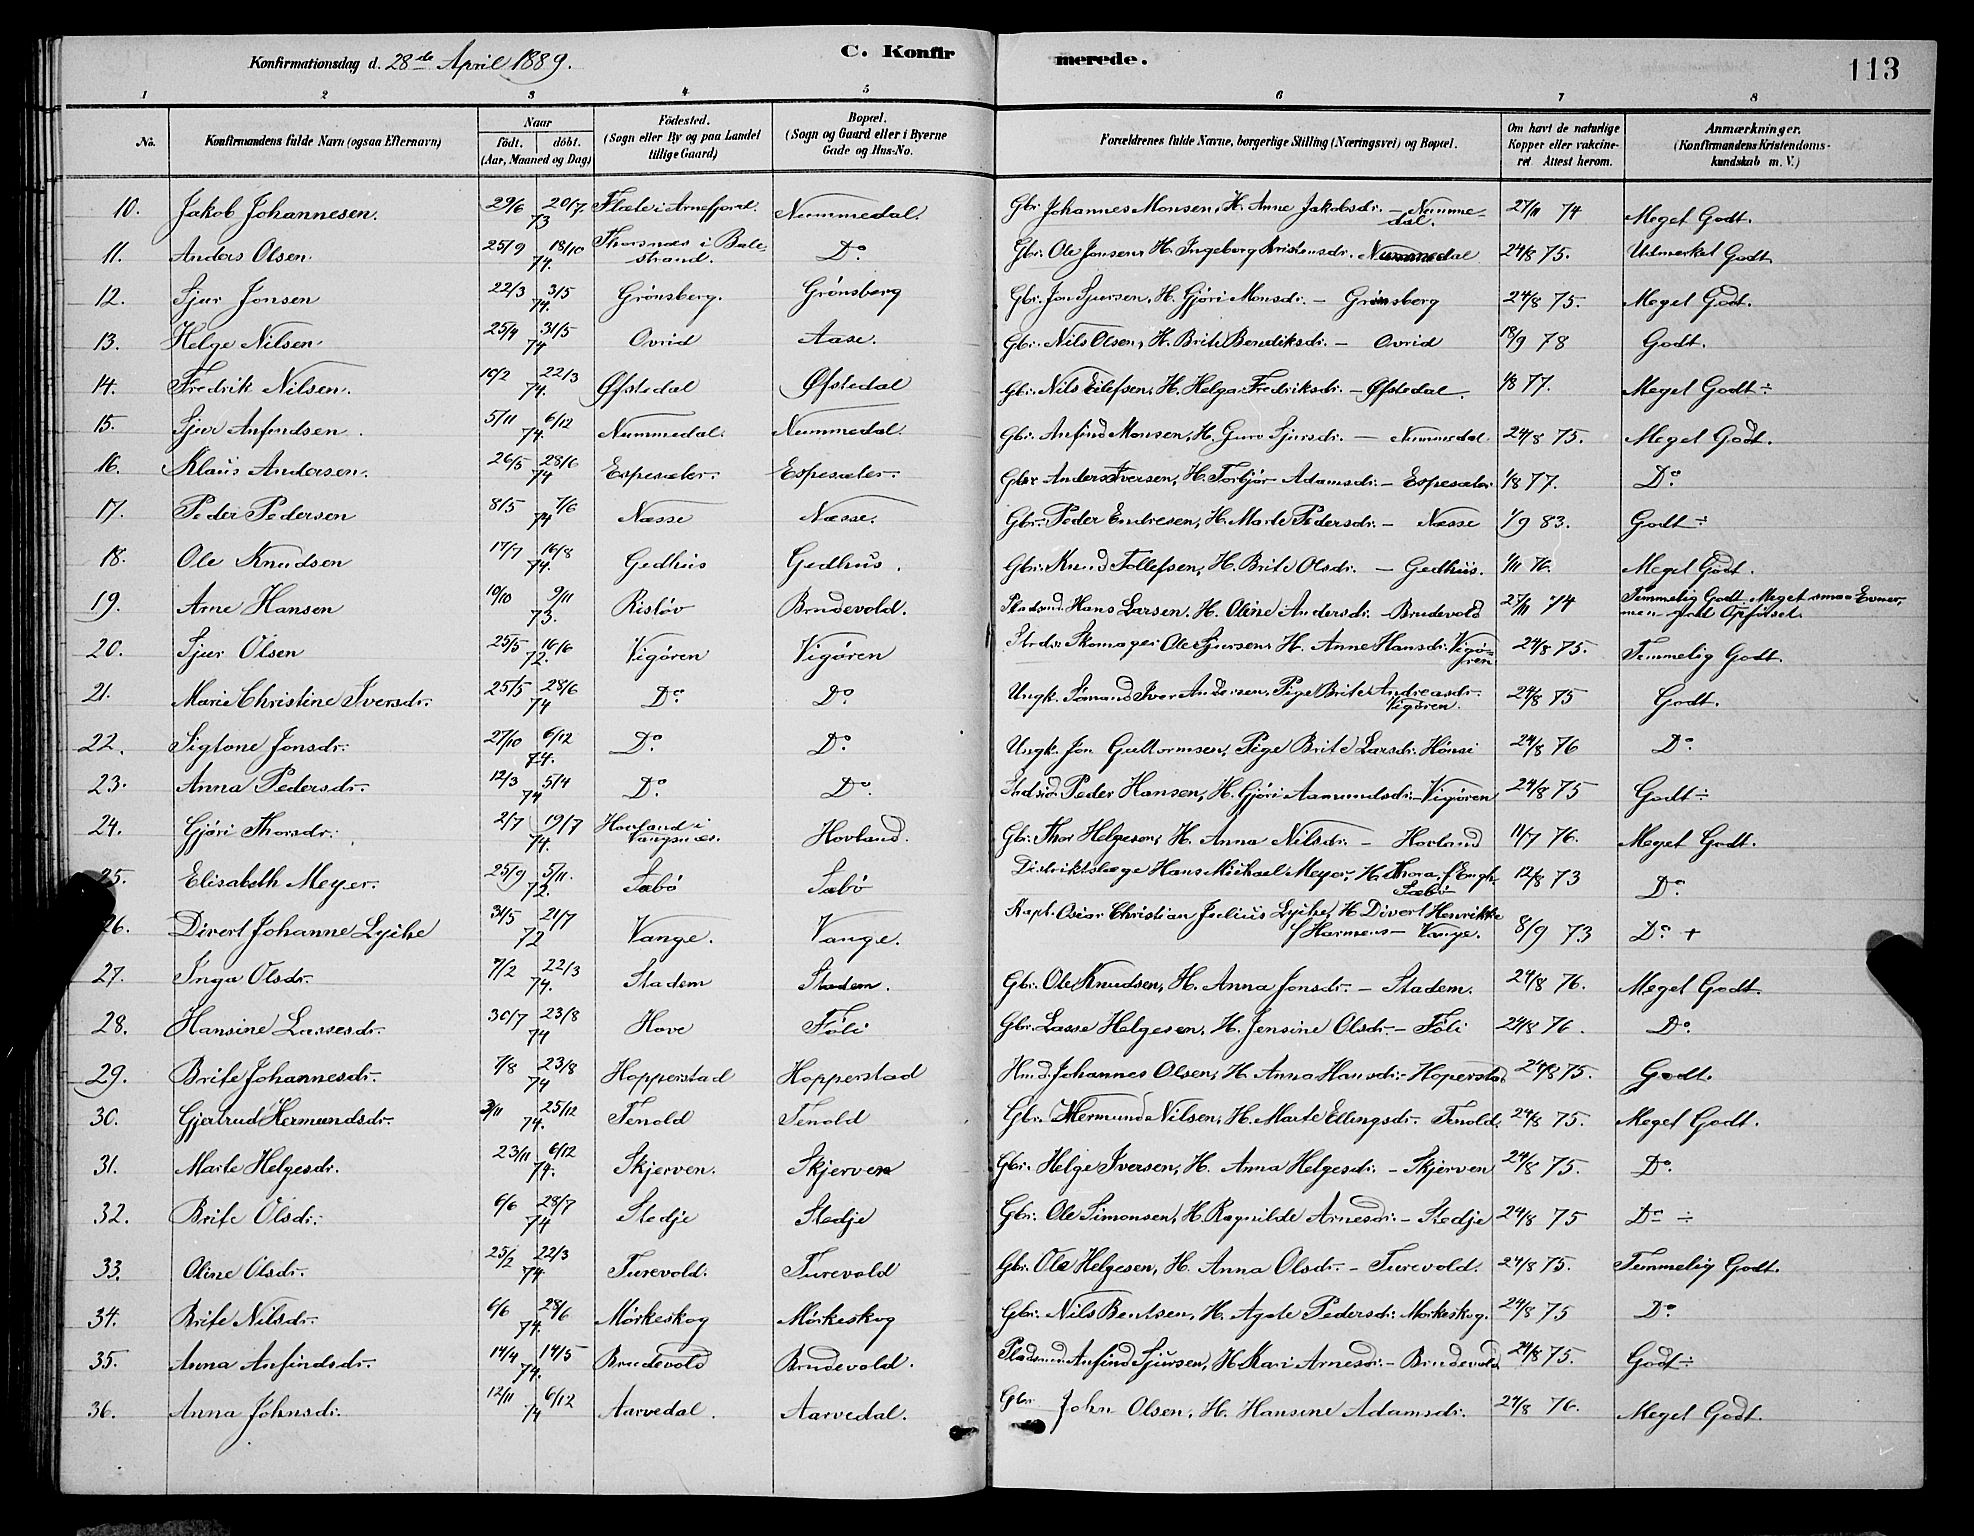 Konfirmationsdag d. 28de April 1889.
C. Konfirmerede.
113
1 2 3 4 5 6 7 8
No. Konfirmandens fulde Navn (ogsaa Efternavn) Naar födt. döbt. (Aar, Maaned og Dag) Födested. (Sogn eller By og paa Landet tillige Gaard) Bopæl. (Sogn og Gaard eller i Byerne Gade og Hus-No. Forældrenes fulde Navne, borgerlige Stilling (Næringsvei) og Bopæl. Om havt de naturlige Kopper eller vakcineret Attest herom. Anmærkninger. (Konfirmandens Kristendomskundskab m. V.)
10. Jakob Johannesen. 29/6 20/7 73 Flæte i Arnefjord. Nummedal. Gbr. Johannes Monsen, H. Anne Jakobsdr. – Nummedal. 27/11 74 Meget Godt.
11. Anders Olsen. 25/9 18/10 74. Thorsnæs i Balestrand. Do. Gbr. Ole Jonsen, H. Ingeborg Kristensdr. Nummedal 24/8 75. Udmerket Godt.
12. Sjur Jonsen 22/3 3/5 74. Grönsberg. Grönsberg Gbr. Jon Sjursen, H. Gjöri Monsdr. – Grönsberg 24/8 75. Meget Godt.
13. Helge Nilsen 25/4 31/5 74 Ovrid Aase. Gbr. Nils Olsen, H. Brite Bendiksdr. – Ovrid 18/9 78 Godt.
14. Fredrik Nilsen. 10/2 22/3 74. Øfstedal Øfstedal Gbr. Nils Eilefsen, H. Helga Fredriksdr. – Øfstedal. 1/8 77. Meget Godt ÷
15. Sjur Anfindsen. 5/11 6/12 74. Nummedal. Nummedal. Gbr. Anfind Monsen, H. Guro Sjursdr. – Nummedal. 24/8 75. Meget Godt.
16. Klaus Andersen. 26/5 28/6 74 Espesæter. Espesæter. Gbr Anders Iversen, H. Torbjör Adamsdr. – Espesæter 1/8 77. Do.
17. Peder Pedersen 8/5 7/6 74 Næsse Næsse. Gbr. Peder Endresen, H. Marte Pedersdr. – Næsse 1/9 83. Godt ÷
18. Ole Knudsen 17/7 16/8 74. Gedhus Gedhus. Gbr. Knud Tollefsen, H. Brite Olsdr. – Gedhus. 1/11 76. Meget Godt.
19. Arne Hansen 10/10 9/11 73. Ristöv Brudevold. Pladsmd. Hans Larsen. H. Oline Andersdr. – Brudevold 27/11 74 Temmelig Godt. Meget smaa Evner, men god Opförsel.
20. Sjur Olsen 25/5 16/6 72. Vigören Vigören Strds. Skomager Ole Sjursen, H. Anne Hansdr. Vigören 24/8 75. Temmelig Godt.
21. Marie Christine Iversdr. 25/5 28/6 74 Do Do Ungk. Sömand Iver Andersen, Pige Brite Andreasdr. Vigören. 24/8 75 Godt.
22. Siglone Jonsdr. 27/10 6/12 74. Do. Do. Ungk. Jon Guttormsen, Pige Brite Larsdr. Hönsi 24/8 76 Do.
23. Anna Pedersdr. 12/3 5/4 74 Do. Do. Strdsid. Peder Hansen, H. Gjöri Aamundsdr. – Vigören 24/8 75 Godt ÷
24. Gjöri Thorsdr. 2/7 19/7 74. Hovland i Vangsnæs. Hovland. Gbr. Thor Helgesen, H. Anna Nilsdr. – Hovland 11/7 76. Meget Godt.
25. Elisabeth Meyer. 25/9 5/11. 72. Sæbö Sæbö Distriktslæge Hans Mikael Meyer, H. Thora f. Engh. Sæbö 12/8 73 Do.
26. Divert Johanne Lyche 31/5 21/7 72 Vange. Vange. Kapt. Oscar Christian Julius Lyche, H. Divert Henrikke f Harmens – Vange. 8/9 73 Do. +
27. Inga Olsdr. 7/2 22/3 74. Stadem Stadem. Gbr. Ole Knudsen, H. Anna Jonsdr. – Stadem. 24/8 76. Meget Godt.
28. Hansine Lassesdr. 30/7 23/8 74 Hove Föli Gbr. Lasse Helgesen, H. Jensine Olsdr. – Föli 24/8 76. Do.
29. Brite Johannesdr. 7/8 23/8 74 Hopperstad Hopperstad Hmd. Johannes Olsen, H. Anna Hansdr. – Hoperstad 24/8 75. Godt.
30. Gjertrud Hermundsdr. 3/11 25/12 74. Tenold Tenold Gbr. Hermund Nilsen, H. Marte Ellingsdr. Tenold. 24/8 75. Meget Godt.
31. Marte Helgesdr. 23/11 6/12 74. Skjerven. Skjerven Gbr. Helge Iversen, H. Anna Helgesdr. – Skjerven 24/8 75. Do.
32. Brite Olsdr. 6/6 28/7 74 Stedje Stedje Gbr. Ole Simonsen, H. Ragnilde Arnesdr. – Stedje 24/8 75 Do ÷
33. Oline Olsdr. 25/2 22/3 74 Turevold. Turevold Gbr. Ole Helgesen, H. Anna Olsdr. – Turevold. 24/8 75. Temmelig Godt.
34. Brite Nilsdr. 6/6 28/6 74. Mörkeskog Mörkeskog Gbr. Nils Bentsen, H. Agate Pedersdr. Mörkeskog. 24/8 75 Do
35. Anna Anfindsdr. 14/4 14/5 74. Brudevold Brudevold. Pladsmd. Anfind Sjursen, H. Kari Arnesdr. – Brudevold 24/8 75. Godt ÷
36. Anna Johnsdr. 12/11 6/12 74 Aarvedal. Aarvedal. Gbr John Olsen, H. Hansine Adamsdr. 24/8 76. Meget Godt.